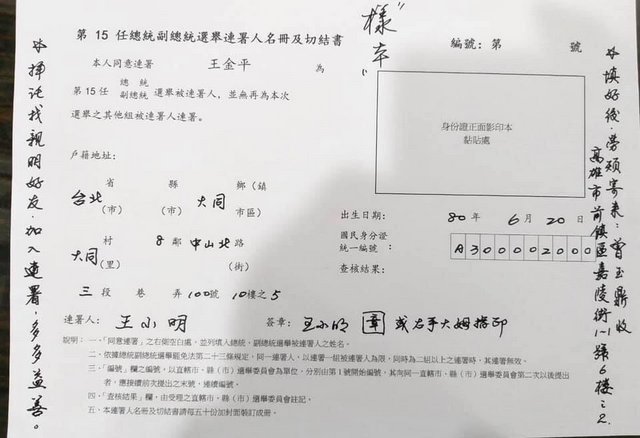 樣本"
第 15 任總統副總統選舉連署人名冊及切結書
編號：第 號
本人同意連署 王金平 為
第 15 任 總統 副總統 選舉被連署人，並無再為本次
選舉之其他組被連署人連署。
身份證正面影印本
黏貼處
戶籍地址：
台北 省(市) 縣(市) 大同 鄉(鎮市區)
大同 村(里) 8 鄰 中山北 路(街)
三 段 巷 弄 100號 10樓之5
出生日期： 80 年 6 月 20 日
國民身分證
統一編號： A300002000
查核結果：
連署人： 王小明 簽章： 王小明 章 或右手大姆指印
說明：一、「同意連署」之右側空白處，並列填入總統、副總統選舉被連署人之姓名。
二、依據總統副總統選舉罷免法第二十三條規定，同一連署人，以連署一組被連署人為限，同時為二組以上之連署時，其連署無效。
三、「編號」欄之編號，以直轄市、縣（市）選舉委員會為單位，分別由第1號開始編號，其向同一直轄市、縣（市）選舉委員會第二次以後提出
者，應接續前次提出之末號，連續編號。
四、「查核結果」欄，由受理之直轄市、縣（市）選舉委員會註記。
五、本連署人名冊及切結書請每五十份加封面裝訂成冊。
※拜託找親朋好友，加入連署，多多益善。
※填好後，勞煩寄來：曾玉鼎收
高雄市前鎮區嘉陵街1-1號6樓之2